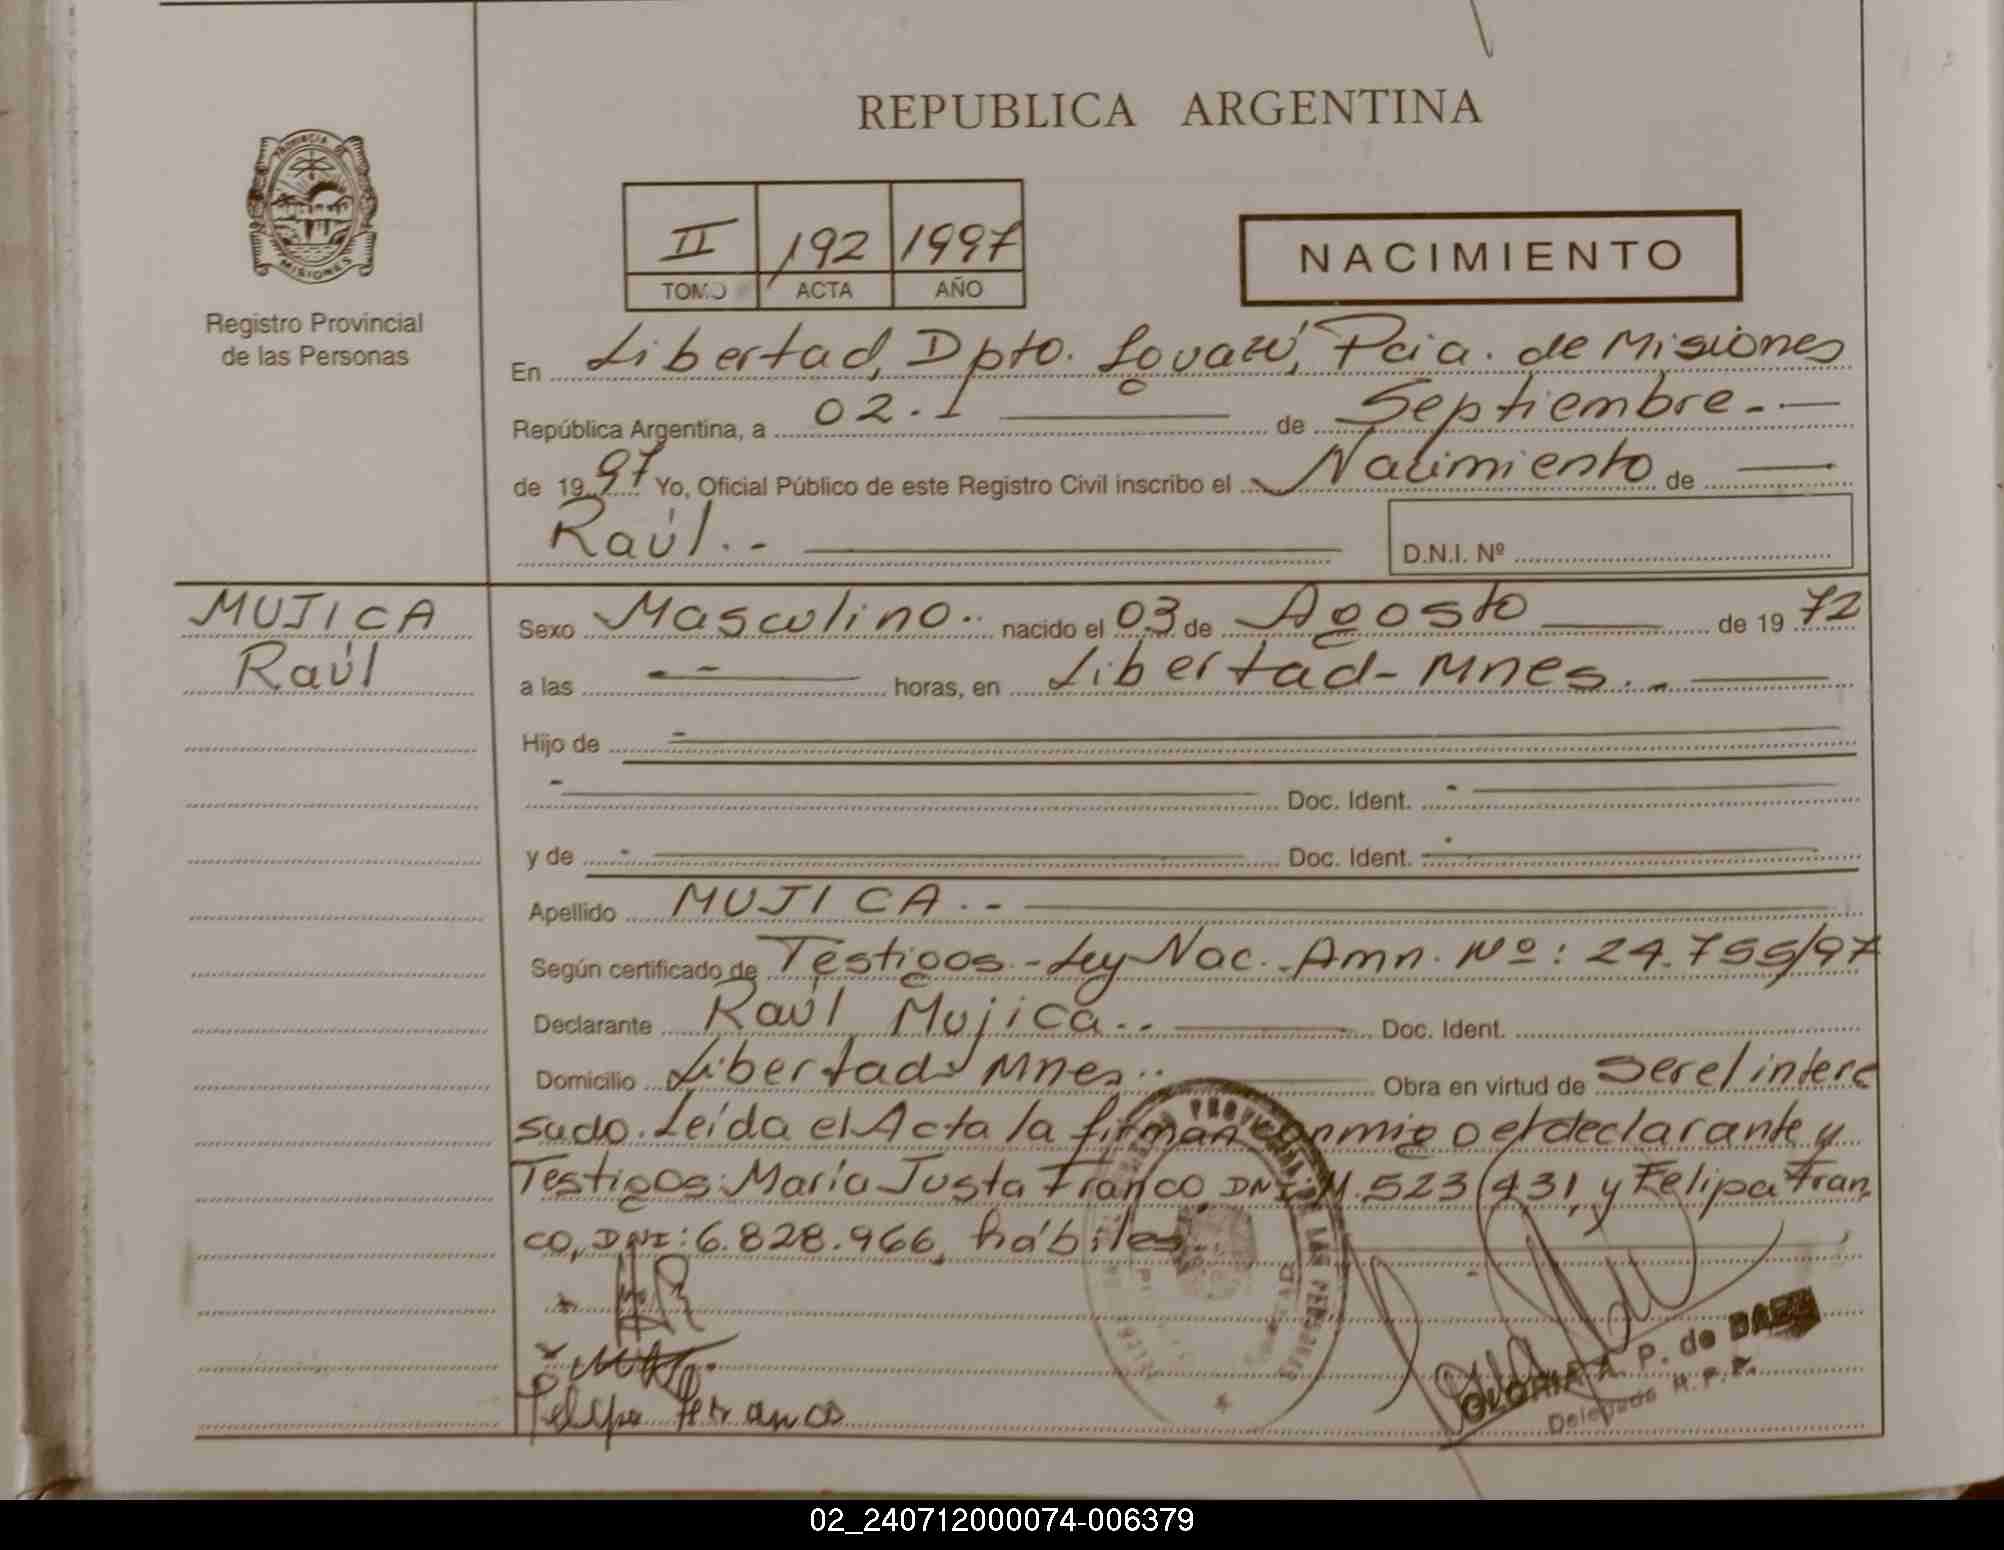 REPUBLICA ARGENTINA
PROVINCIA DE
MISIONES
Registro Provincial
de las Personas
II 192 1997
TOMO ACTA AÑO
NACIMIENTO
En Libertad, Dpto. Iguazú, Pcia. de Misiones
República Argentina, a 02.- de Septiembre.-
de 1997 Yo, Oficial Público de este Registro Civil inscribo el Nacimiento de
Raúl..-
D.N.I. Nº
MUJICA
Raúl
Sexo Masculino.. nacido el 03 de Agosto de 19 72
a las horas, en Libertad-Mnes..-
Hijo de
Doc. Ident.
y de Doc. Ident.
Apellido MUJICA..-
Según certificado de Testigos.-Ley Nac. Amn. Nº: 24.755/97
Declarante Raúl Mujica.. Doc. Ident.
Domicilio Libertad-Mnes.. Obra en virtud de ser el intere
sado. Leída el Acta la firman conmigo el declarante y
Testigos: María Justa Franco, DNI: 523 431, y Felipa Fran
co, DNI: 6.828.966, hábiles
Felipa Franco
GLORIA A. P. de
Delegada R. P. P.
02_240712000074-006379